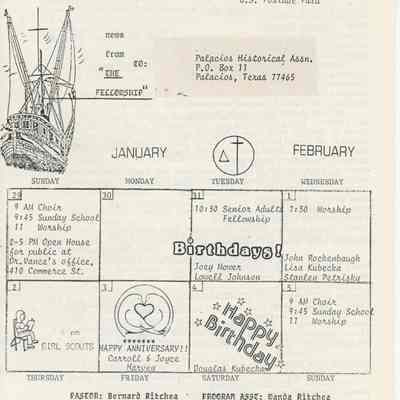 U.S. Postage Paid
news
from
TO:
"THE
FELLOWSHIP"
Palacios Historical Assn.
P.O. Box 11
Palacios, Texas 77465
JANUARY
FEBRUARY
SUNDAY MONDAY TUESDAY WEDNESDAY
29
9 AM Choir
9:45 Sunday School
11 Worship
2-5 PM Open House
for public at
Dr.Vance's office,
410 Commerce St.
30
31
10:30 Senior Adults
Fellowship
Birthdays!
Joey Hover
Lowell Johnson
1
7:30 Worship
John Rockenbaugh
Lisa Kubecka
Stanley Petrisky
2
pm
GIRL SCOUTS
3
HAPPY ANNIVERSARY!!
Carroll & Joyce
Harvey
4
Happy
Birthday
Douglas Kubecka
5
9 AM Choir
9:45 Sunday School
11 Worship
THURSDAY FRIDAY SATURDAY SUNDAY
PASTOR: Bernard Ritchea PROGRAM ASST: Wanda Ritchea